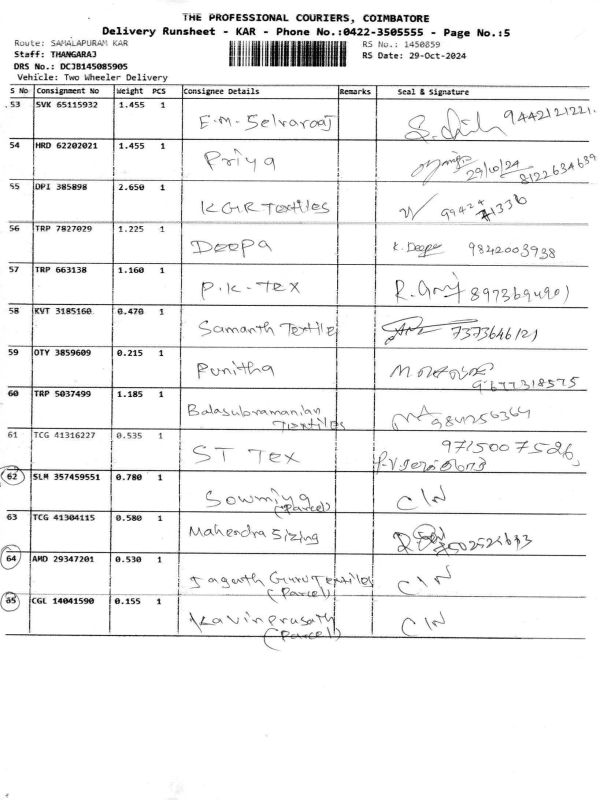 THE PROFESSIONAL COURIERS, COIMBATORE
Delivery Runsheet - KAR - Phone No.:0422-3505555 - Page No.:5
Route: SAMALAPURAM KAR
RS No.: 1450859
Staff: THANGARAJ
RS Date: 29-Oct-2024
DRS No.: DCJB145085905
Vehicle: Two Wheeler Delivery
S No Consignment No Weight PCS Consignee Details Remarks Seal & Signature
53 SVK 65115932 1.455 1 E.M. Selvaraaj 9442121221
54 HRD 62202021 1.455 1 Priya 29/10/24 8122634639
55 DPI 385898 2.650 1 KGR Textiles
56 TRP 7827029 1.225 1 Deepa K. Deepa 9842003938
57 TRP 663138 1.160 1 P.K-Tex
58 KVT 3185160 0.470 1 Samanth Textile 7373646121
59 OTY 3859609 0.215 1 Punitha 9677318575
60 TRP 5037499 1.185 1 Balasubramanian Textiles
61 TCG 41316227 0.535 1 ST Tex 9715007526
62 SLM 357459551 0.780 1 Sowmiya (Parcel) CIN
63 TCG 41304115 0.580 1 Mahendra Sizing
64 AMD 29347201 0.530 1 Jagath Guru Textiles (Parcel) CIN
65 CGL 14041590 0.155 1 Kavinprasath (Parcel) CIN